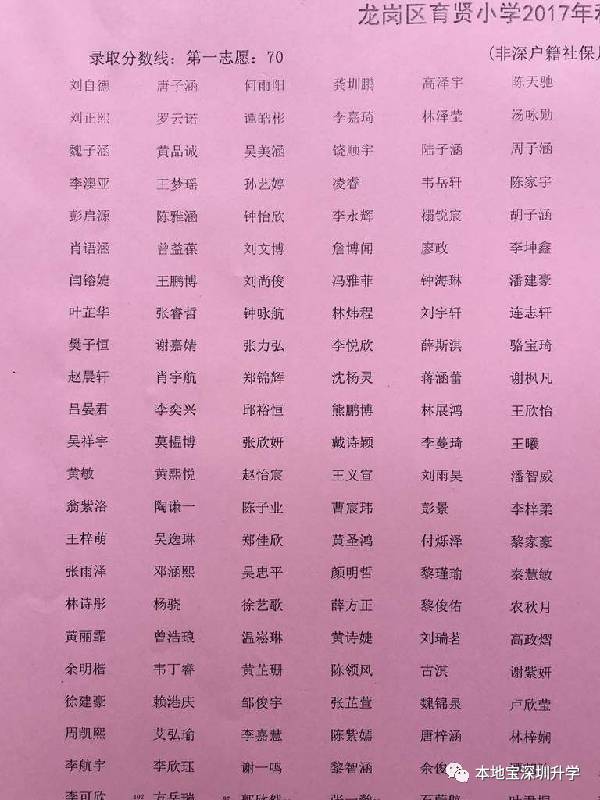 龙岗区育贤小学2017年
录取分数线：第一志愿：70 (非深户籍社保
刘自德 唐子涵 何雨阳 龚圳鹏 高泽宇 陈天驰
刘正熙 罗云诺 谭皓彬 李嘉琦 林泽莹 汤咏勋
魏子涵 黄品诚 吴美涵 饶顺宇 陆子涵 周子涵
李澳亚 王梦瑶 孙艺婷 凌睿 韦岳轩 陈家宇
彭启源 陈雅涵 钟怡欣 李永辉 禤锐宸 胡子涵
肖语涵 曾益葆 刘文博 詹博闻 廖政 李坤鑫
闫镕婕 王鹏博 刘尚俊 冯雅菲 钟海琳 潘建豪
叶芷华 张睿哲 钟咏航 林炜程 刘宇轩 连志轩
樊子恒 谢嘉婧 张力弘 李悦欣 薛斯淇 骆宝琦
赵晨轩 肖宇航 郑锦辉 沈杨灵 蒋涵蕾 谢枫凡
吕晏君 李奕兴 邱裕恒 熊鹏博 林展鸿 王欣怡
吴祥宇 莫榅博 张欣妍 戴诗颖 李蔓琦 王曦
黄敏 黄熙悦 赵怡宸 王义宣 刘雨昊 潘智威
翁紫洛 陶谦一 陈子业 曹宸玮 彭景 李梓柔
王梓萌 吴逸琳 郑佳欣 黄圣鸿 付烁泽 黎家豪
张雨泽 邓涵熙 吴忠平 颜明哲 黎瑾瑜 秦慧敏
林诗彤 杨骁 徐艺歌 薛方正 黎俊佑 农秋月
黄丽霏 曾浩琅 温崧琳 黄诗婕 刘瑞茗 高政熠
余明楷 韦丁睿 黄芷珊 陈领凤 古滨 谢紫妍
徐建豪 赖浩庆 邹俊宇 张芷萱 魏锦泉 卢欣莹
周凯熙 艾弘瑜 李嘉慧 陈紫嫣 唐梓涵 林梓娴
李航宇 李欣珏 谢一鸣 黎智涵 余俊
李可欣 方岳瑞
本地宝深圳升学